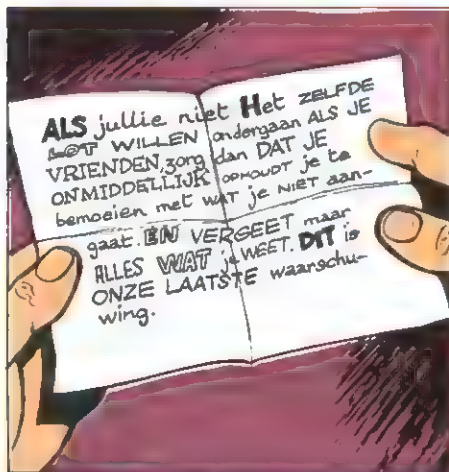 ALS jullie niet Het ZELFDE
LOT WILLEN ondergaan ALS JE
VRIENDEN, zorg dan DAT JE
ONMIDDELLIJK OPHOUDT je te
bemoeien met WAT je NIET aan-
gaat. EN VERGEET maar
ALLES WAT je WEET. DIT is
ONZE LAATSTE waarschu-
wing.